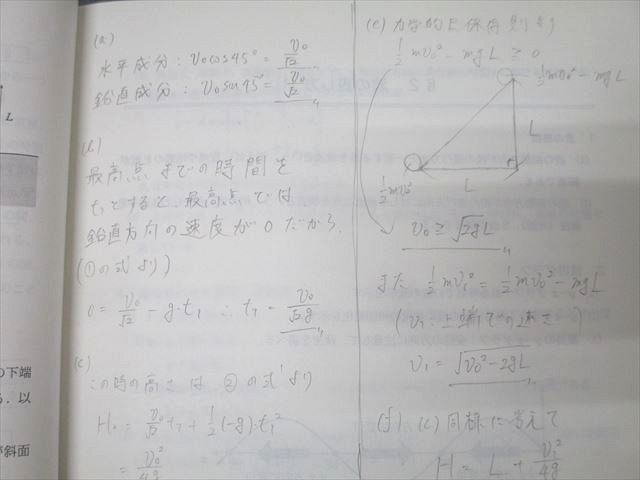 (a)
水平成分：v₀cos45° = v₀/√2
鉛直成分：v₀sin45° = v₀/√2
(b)
最高点までの時間を
t₁とすると、最高点では
鉛直方向の速度が0だから、
(①の式より)
0 = v₀/√2 - g·t₁ ∴ t₁ = v₀/√2g
(c)
この時の高さは②の式より
H₀ = v₀/√2 t₁ + 1/2(-g)·t₁²
= v₀²/4g
(e) 力学的E保存則より
1/2 mv₀² - mgL ≥ 0
1/2 mv₀² - mgL
L
L
1/2 mv₀²
v₀ ≥ √2gL
また 1/2 mv₁² = 1/2 mv₀² - mgL
(v₁：上端での速さ)
v₁ = √v₀² - 2gL
(f) (c)同様に考えて
H = L + v₁²/4g
L
の下端
る．以
が斜面